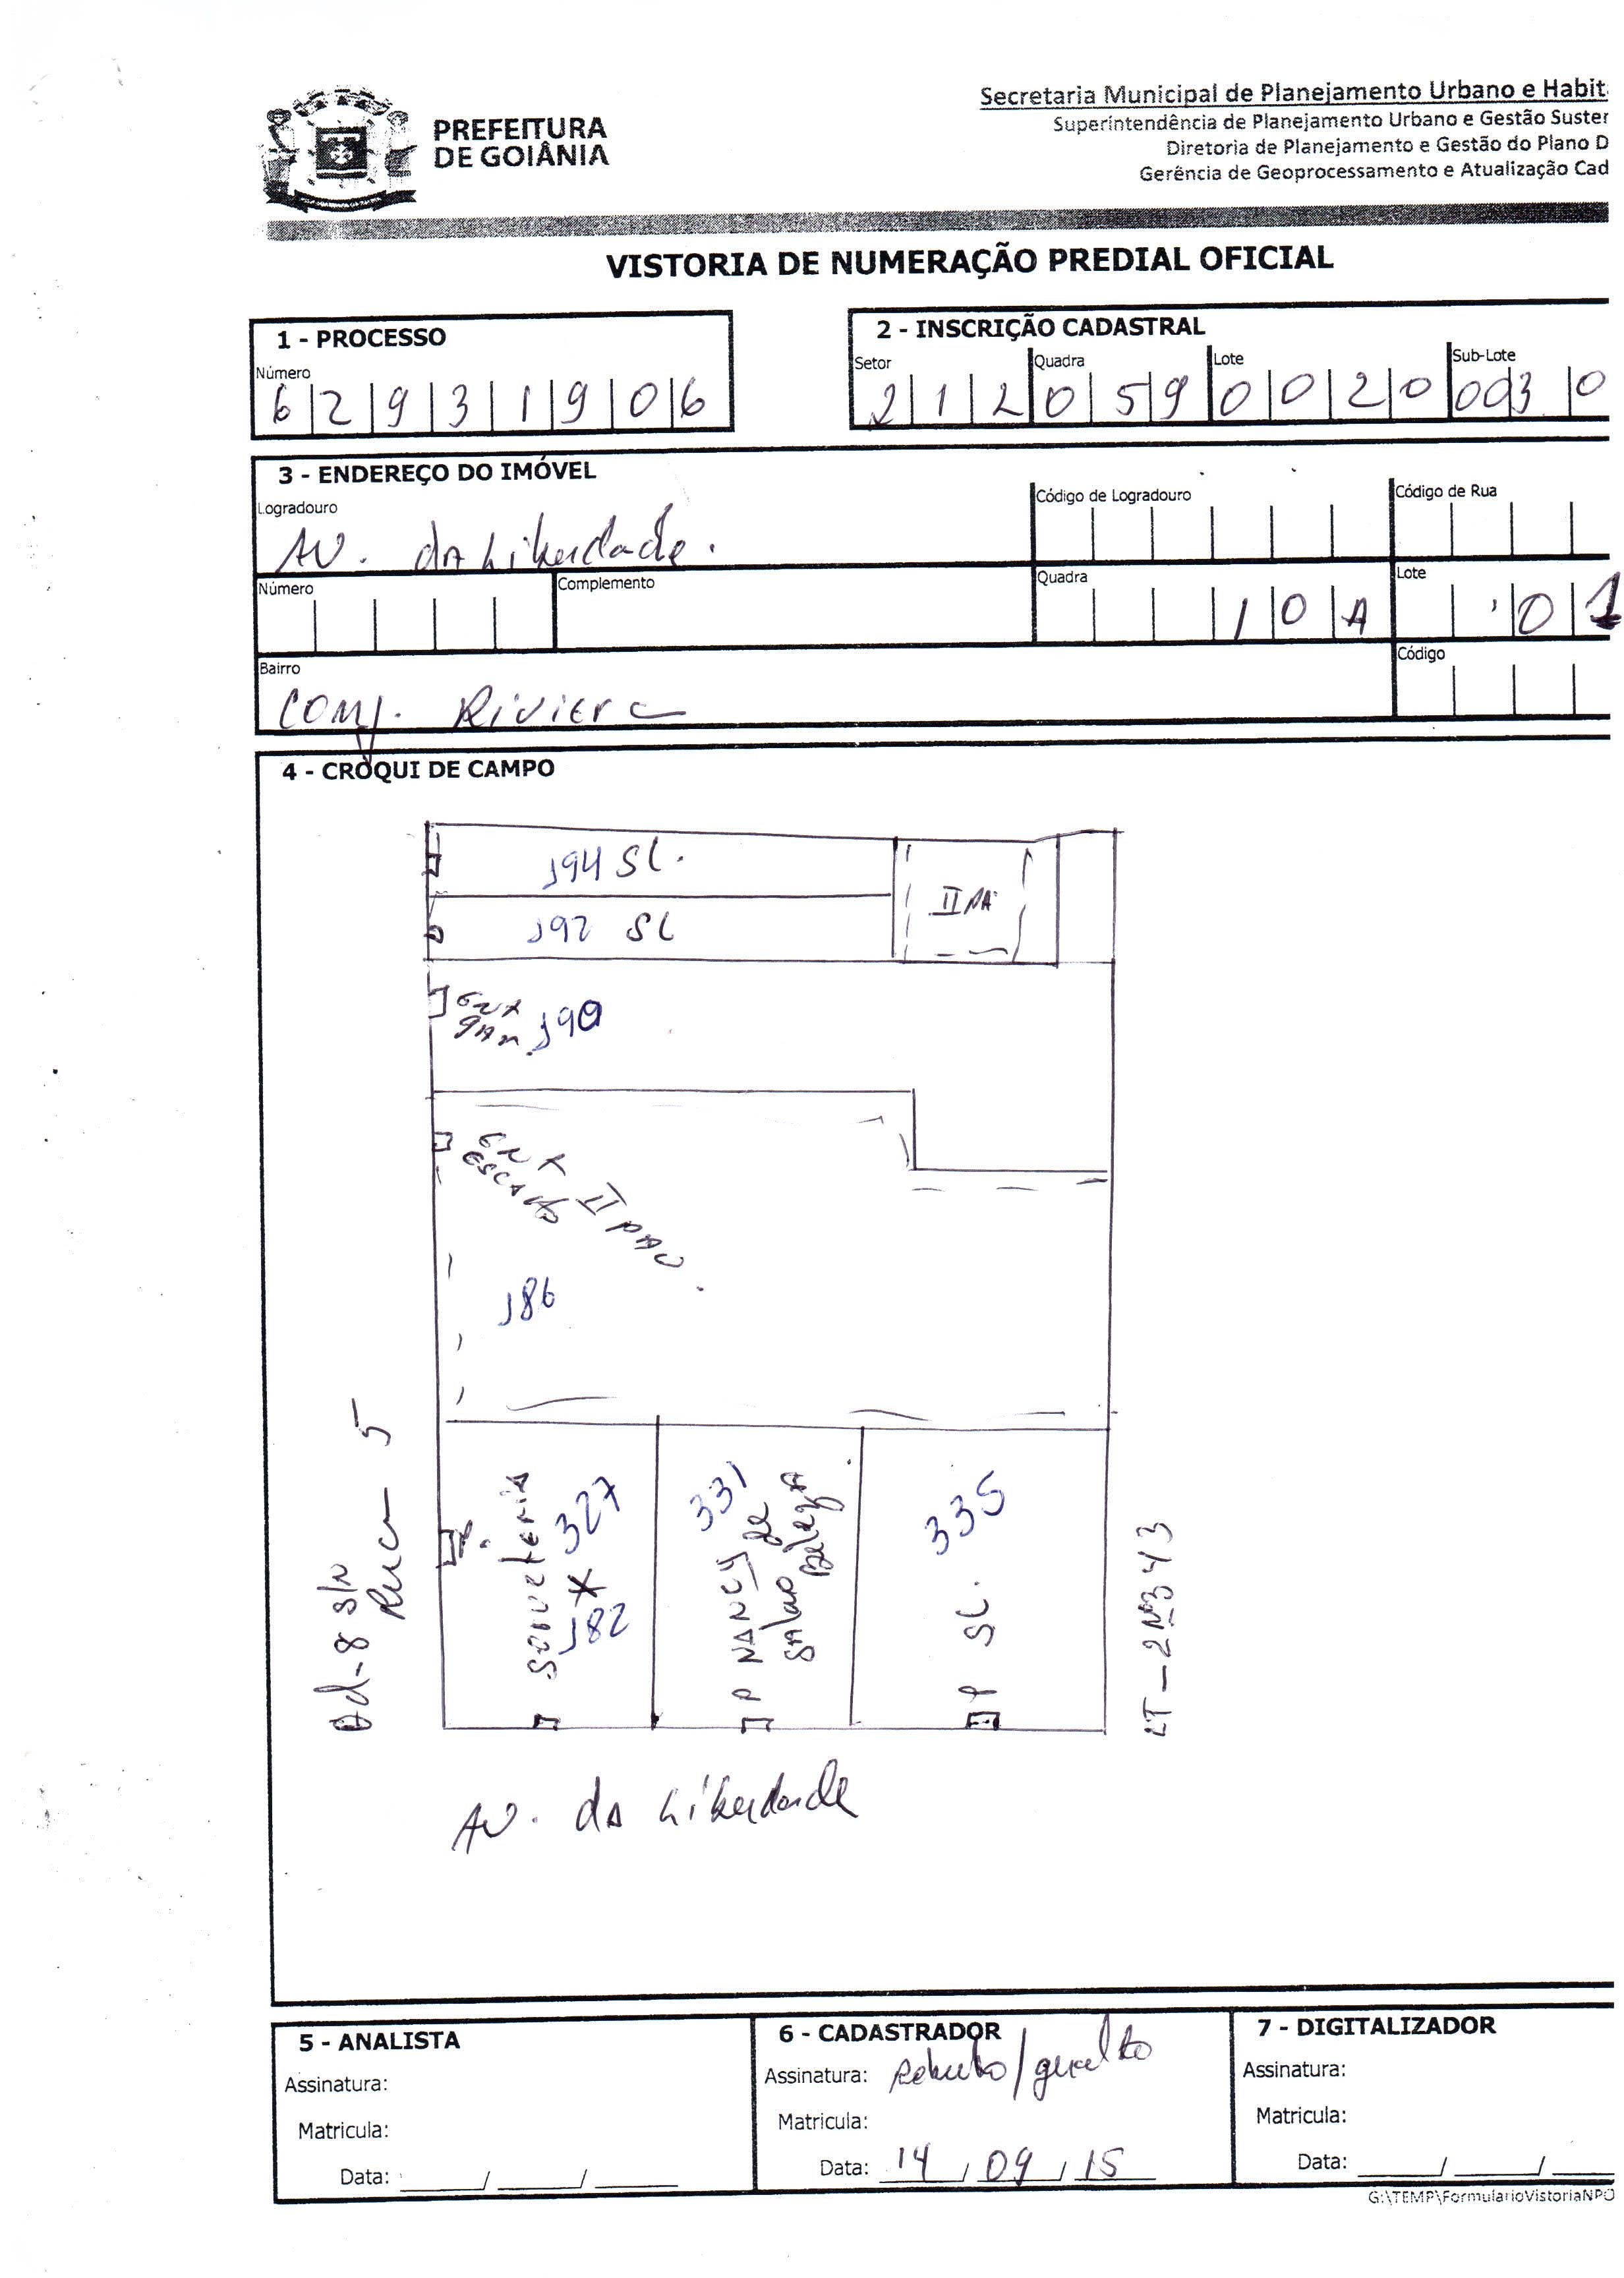 PREFEITURA
DE GOIÂNIA
Secretaria Municipal de Planejamento Urbano e Habit
Superintendência de Planejamento Urbano e Gestão Suster
Diretoria de Planejamento e Gestão do Plano D
Gerência de Geoprocessamento e Atualização Cad
VISTORIA DE NUMERAÇÃO PREDIAL OFICIAL
1 - PROCESSO
Número
6 2 9 3 1 9 0 6
2 - INSCRIÇÃO CADASTRAL
Setor Quadra Lote Sub-Lote
2 1 2 0 5 9 0 0 2 0 003 0
3 - ENDEREÇO DO IMÓVEL
Logradouro
Código de Logradouro
Código de Rua
AV. da Liberdade.
Número
Complemento
Quadra
1 0 A
Lote
0 1
Bairro
Código
Conj. Riviera
4 - CROQUI DE CAMPO
194 SL.
II PA
192 SL
190
ESCADA
II PAV.
186
Qd-8 S/N
Rua 5
Sorveteria
327
X
182
331
P NANCY
Salão de
Beleza
335
P SL.
LT-2 Nº 343
AV. da Liberdade
5 - ANALISTA
Assinatura:
Matricula:
Data: / /
6 - CADASTRADOR
Assinatura:
Matricula:
Data: 14 / 09 / 15
7 - DIGITALIZADOR
Assinatura:
Matricula:
Data: / /
G:\TEMP\FormularioVistoriaNPO